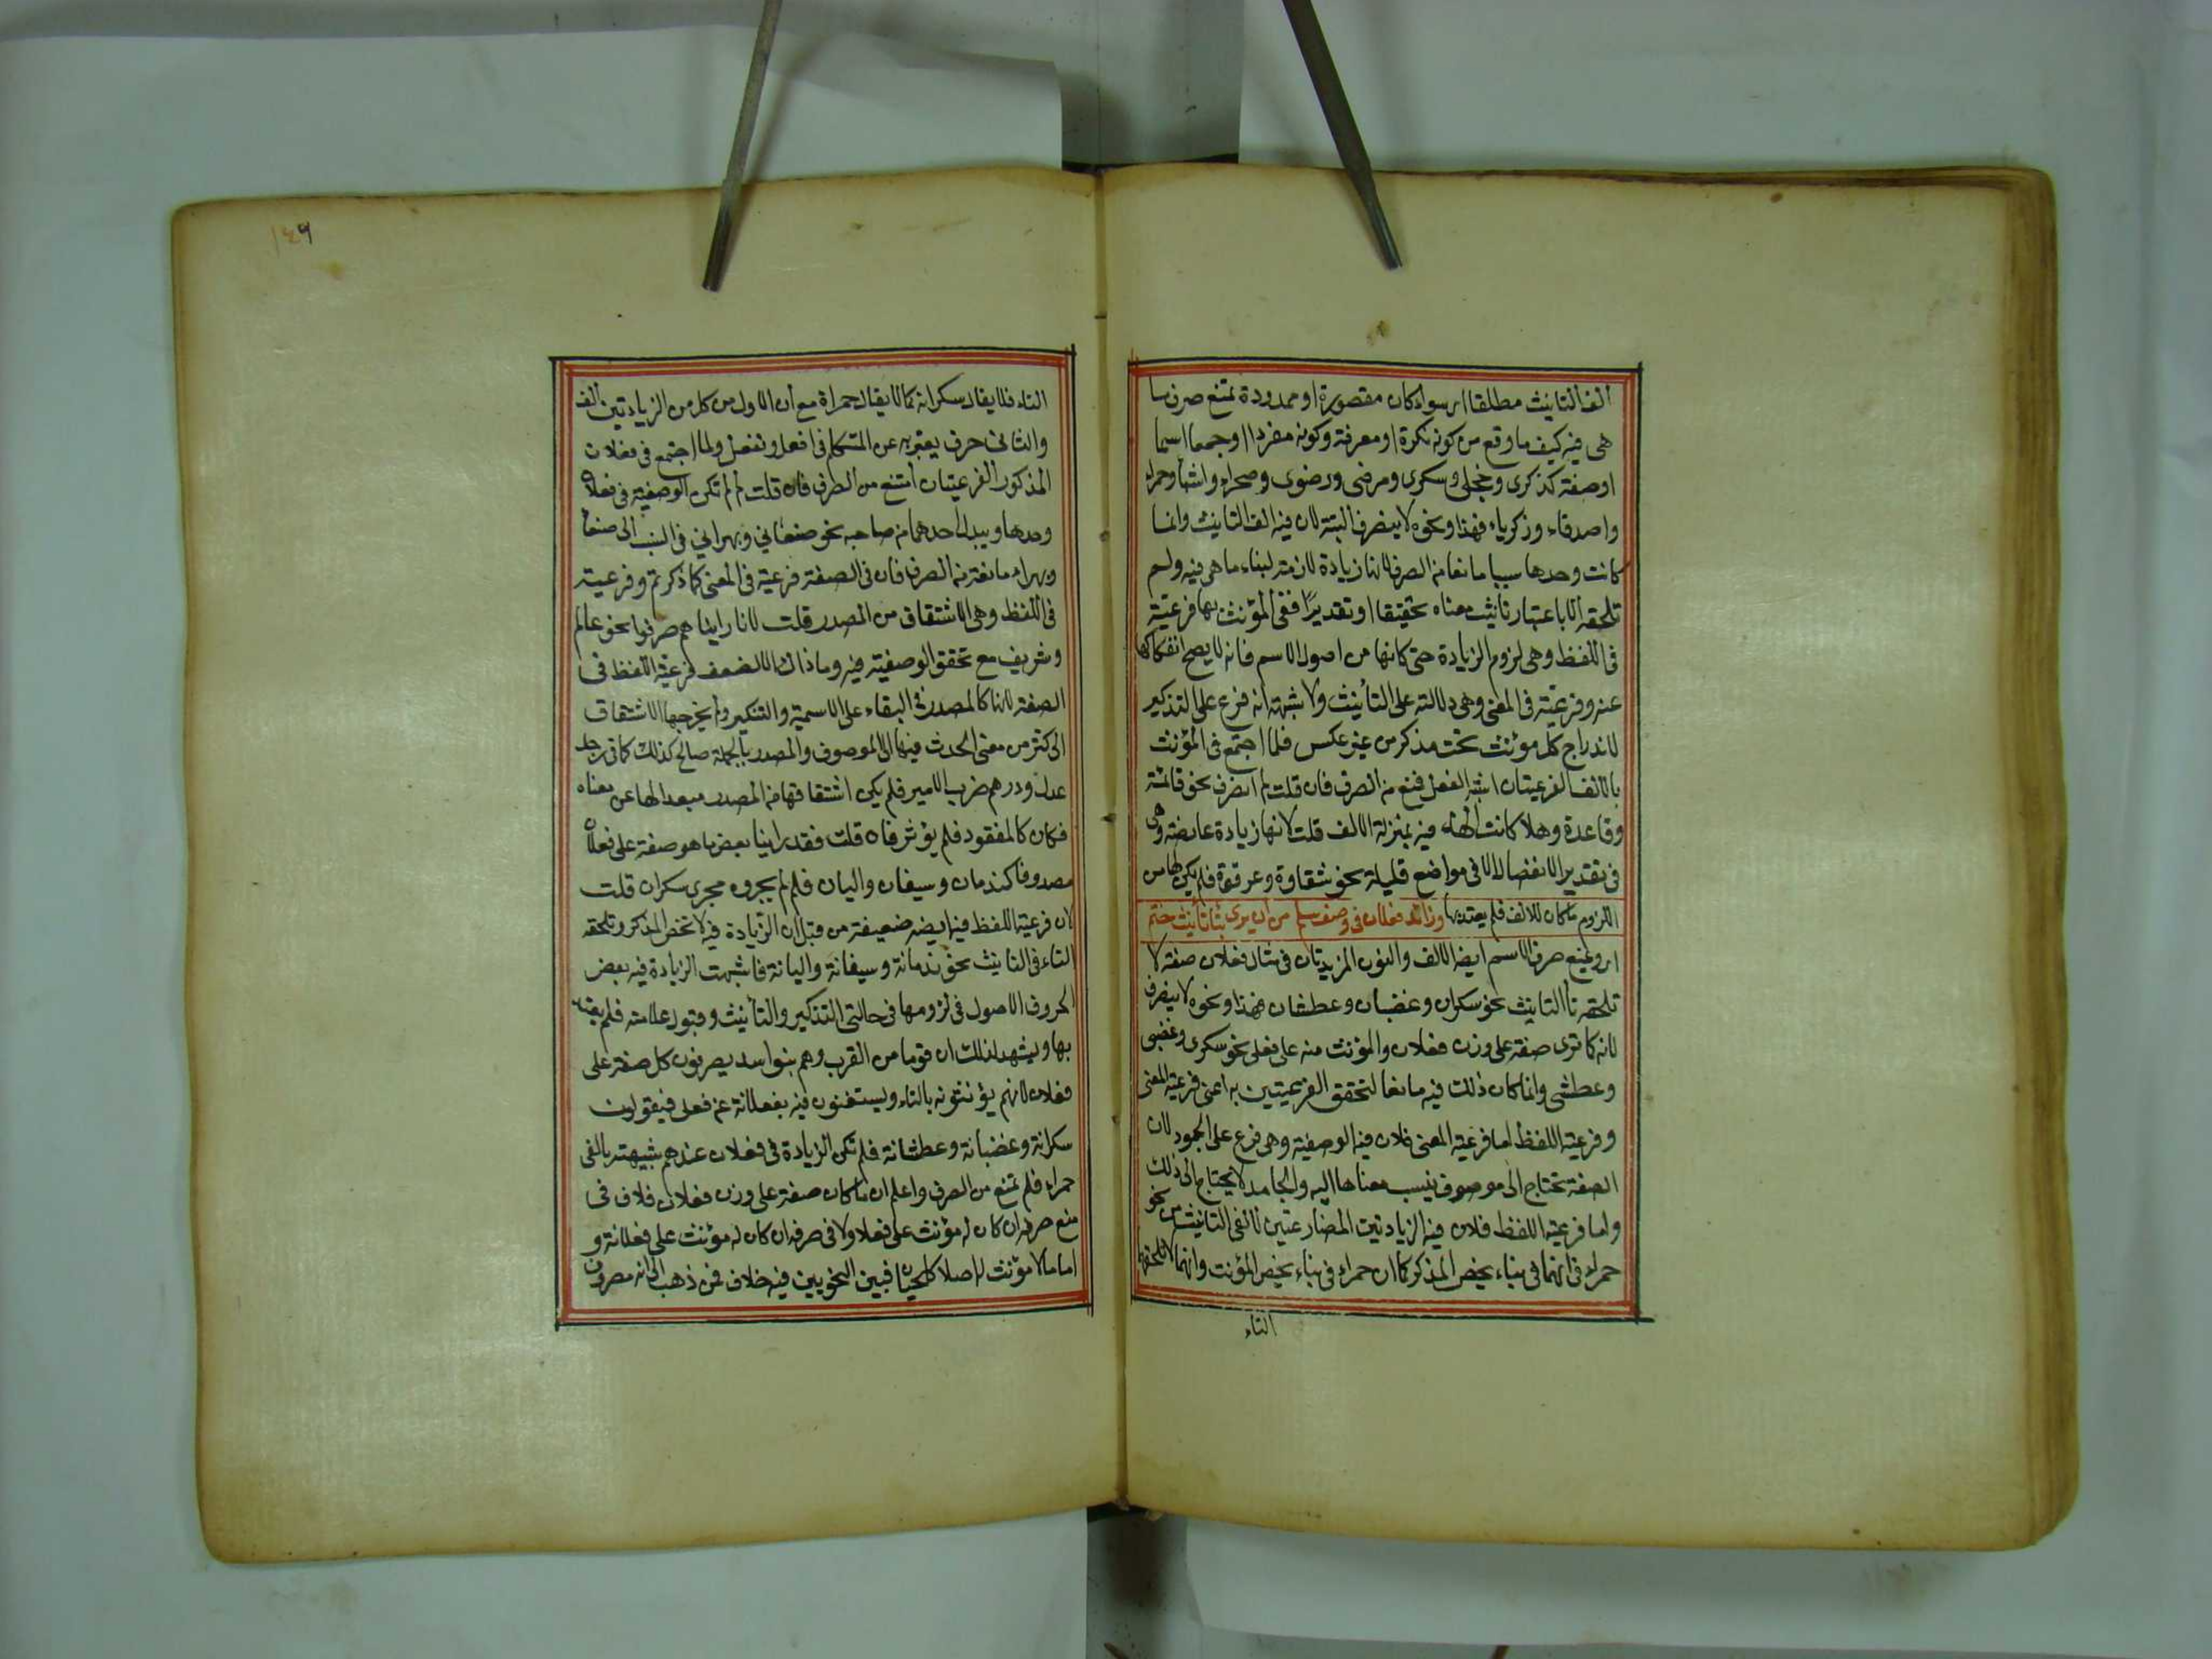 الف التانيث مطلقا اى سواء كان مقصورة او ممدودة تمنع صرف ما
هى فيه كيف ما وقع من كونه نكرة او معرفة وكونه مفردا او جمعا اسما
او صفة كذكرى وحجلى وسكرى ومرضى ورضوى وصحراء واشياء وحمراء
واصدقاء وزكرياء فهذا ونحوه لا ينصرف البتة لان فيه الف التانيث وانما
كانت وحدها سببا مانعا من الصرف لانها زيادة لازمة لبناء ما هى فيه ولم
تلحقه الا باعتبار تانيث معناه تحقيقا او تقديرًا ففى المؤنث بها فرعيّة
فى اللفظ وهى لزوم الزيادة حتى كانها من اصول الاسم فانه لا يصح انفكاكها
عنه وفرعيّة فى المعنى وهى دلالته على التأنيث ولا شبهة انه فرع على التذكير
لاندراج كل مؤنث تحت مذكر من غير عكس فلما اجتمع فى المؤنث
بالالف الفرعيتان اشبه الفعل فمنع من الصرف فان قلت لم انصرف نحو قائمة
وقاعدة وهلا كانت الهاء فيه بمنزلة الالف قلت لانها زيادة عارضة وهى
فى تقدير الانفصال الا فى مواضع قليلة نحو شقاوة وعرقوة فلم يكن لها من
اللزوم ما كان للالف فلم يعتد بها وزائدا فعلان فى وصف سلم من ان يرى بتا تأنيث ختم
اى ويمنع صرف الاسم ايضا الالف والنون المزيدتان فى مثال فعلان صفة لا
تلحقه تأ التانيث نحو سكران وغضبان وعطشان فهذا ونحوه لا ينصرف
لانه كما ترى صفة على وزن فعلان والمؤنث منه على فعلى نحو سكرى وغضبى
وعطشى وانما كان ذلك فيه مانعا لتحقق الفرعيتين به اعنى فرعية المعنى
وفرعية اللفظ اما فرعية المعنى فلان فيه الوصفية وهى فرع على الجمود لان
الصفة تحتاج الى موصوف ينسب معناها اليه والجامد لا يحتاج الى ذلك
واما فرعية اللفظ فلان فيه الزيادتين المضارعتين لالفى التانيث من نحو
حمراء فى انهما فى بناء يخص المذكر كما ان حمراء فى بناء يخص المؤنث وانهما لا تلحقهما
التاء
١٤٩
التاء فلا يقال سكرانة كما لا يقال حمراة مع ان الاول من كل من الزيادتين الف
والثانى حرف يعتبر به عن المتكلم فى افعل ونفعل ولما اجتمع فى فعلان
المذكور الفرعيتان امتنع من الصرف فان قلت لم لم تكن الوصفية فى فعلان
وحدها ويبدل احدهما من صاحبه نحو صنعاني وبهراني فى النسب الى صنعأ
وبهراء مانعة من الصرف فان فى الصفة فرعية فى المعنى كما ذكرتم وفرعية
فى اللفظ وهى الاشتقاق من المصدر قلت لانا رايناهم صرفوا نحو عالم
وشريف مع تحقق الوصفية فيه وما ذاك الا لضعف فرعية اللفظ فى
الصفة لانها كالمصدر فى البقاء على الاسمية والتنكير ولم يخرجها الاشتقاق
الى اكثر من معنى الحدث فيها الى الموصوف والمصدر بالجملة صالح كذلك كما فى رجل
عدل ودرهم ضرب الامير فلم يكن اشتقاقها من المصدر مبعدا لها عن معناه
فكان كالمفقود فلم يؤثر فان قلت فقد راينا بعض ما هو صفة على فعلان
مصروفا كندمان وسيفان واليان فلم لم يجروه مجرى سكران قلت
لان فرعية اللفظ فيه ايضه ضعيفة من قبل ان الزّيادة فيه لا تخص المذكر وتلحقه
التاء فى التانيث نحو ندمانة وسيفانة واليانة فاشبهت الزيادة فيه بعض
الحروف الاصول فى لزومها فى حالتى التذكير والتأنيث وقبول علامته فلم يعتد
بها ويشهد لذلك ان قوما من العرب وهم بنو اسد يصرفون كل صفة على
فعلان لانهم يؤنثونه بالتاء ويستغنون فيه بفعلانة عن فعلى فيقولون
سكرانة وغضبانة وعطشانة فلم تكن الزيادة فى فعلان عندهم شبيهة بالفى
حمراء فلم تمنع من الصرف واعلم ان ما كان صفة على وزن فعلان فلا خلاف فى
منع صرفه ان كان له مؤنث على فعلى ولا فى صرفه ان كان له مؤنث على فعلانة و
اما ما لا مؤنث له اصلا كلحيان فبين النحويين فيه خلاف فمن ذهب الى انه مصروف